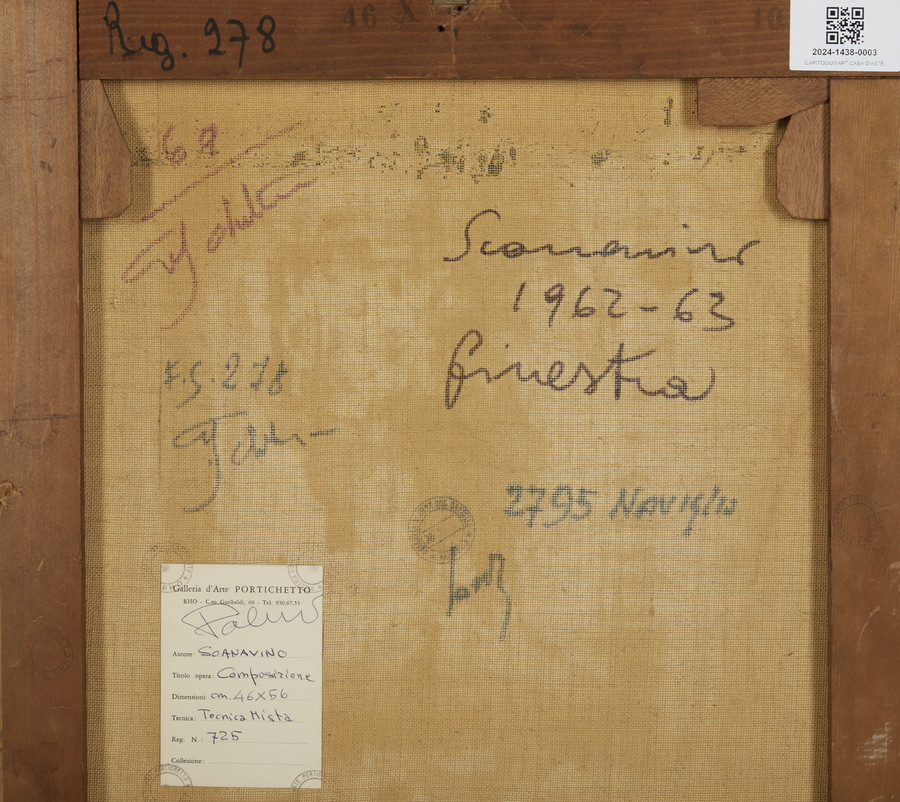 Reg. 278
46 X
10
2024-1438-0003
CAPITOLIUMART CASA D'ASTE
67
Scanavino
1962-63
finestra
F.S. 278
2795 Navigio
Galleria d'Arte PORTICHETTO
RHO - C.so Garibaldi, 60 - Tel. 930.67.53
Autore: SCANAVINO
Titolo opera: Composizione
Dimensioni: cm. 46X56
Tecnica: Tecnica Mista
Reg. N.: 725
Collezione: